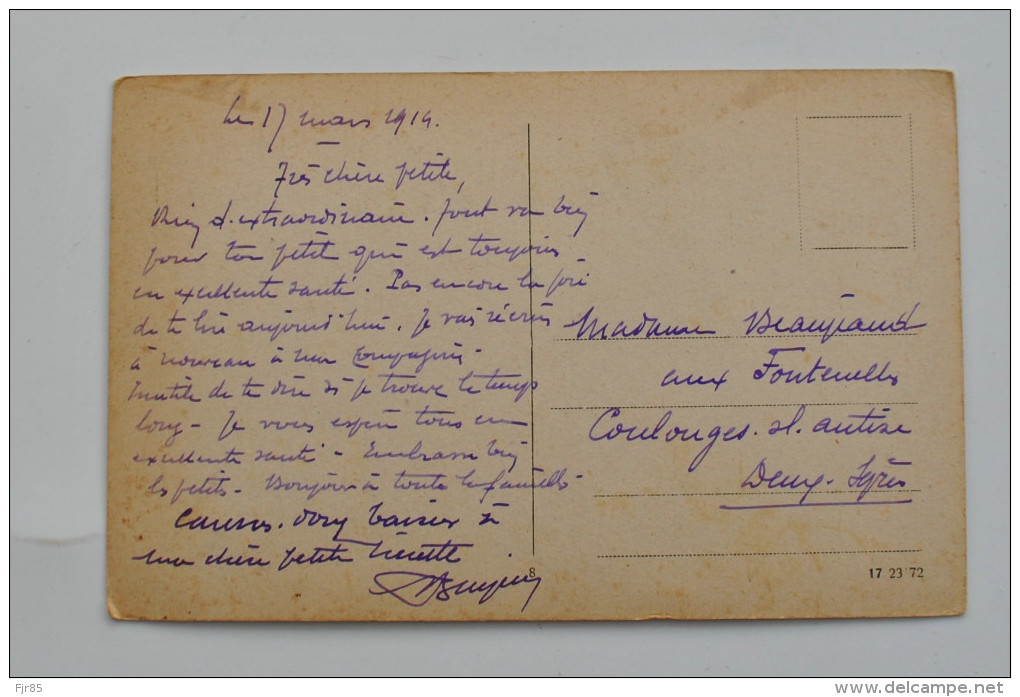 Le 17 mars 1914.
Très chère petite,
Rien d'extraordinaire. Tout va bien
pour ton petit qui est toujours
en excellente santé. Pas encore la joie
de te lire aujourd'hui. Je vais récrire
à nouveau à ma compagnie.
Inutile de te dire si je trouve le temps
long. Je vous espère tous en
excellente santé. Embrasse bien
les petits. Bonjour à toute la famille.
doux baisers à
ma chère petite
Madame Beaujeaud
aux Fontenelles
Coulonges. s/. autize
Deux-Sèvres
8
17 23 72
Fjr85
www.delcampe.net